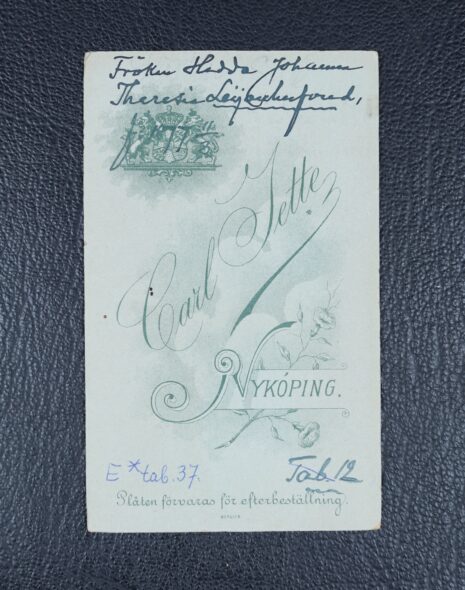 Fröken Hedda Johanna
Theresia Leijonhufvud,
Carl Jette
NYKÖPING.
E* tab. 37.
Tab. 12
Plåten förvaras för efterbeställning.